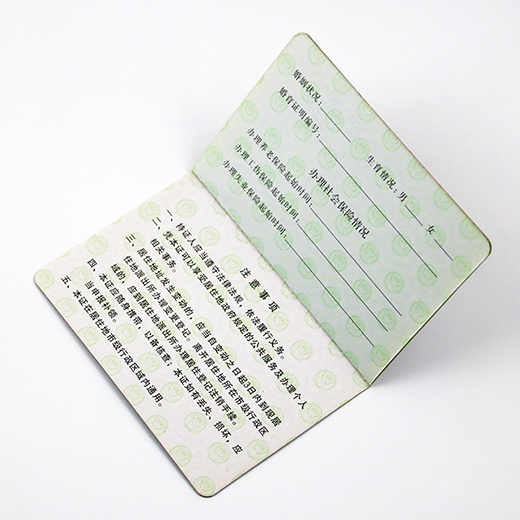 婚姻状况：
婚育证明编号：
生育情况：男 女
办理社会保险情况
办理养老保险起始时间：
办理工伤保险起始时间：
办理失业保险起始时间：
注意事项
一、持证人应当遵守法律法规，依法履行义务。
二、凭本证可以享受居住地政府规定的公共服务及办理个人
相关事务。
三、居住地址发生变动的，应当自变动之日起3日内到现居
住地派出所办理变更登记。离开居住地所在市级行政区
域的，应到居住地派出所办理居住登记注销手续。
四、本证应随身携带，以备核查；本证如有丢失、损坏，应
当申报补领。
五、本证在居住地市级行政区域内通用。